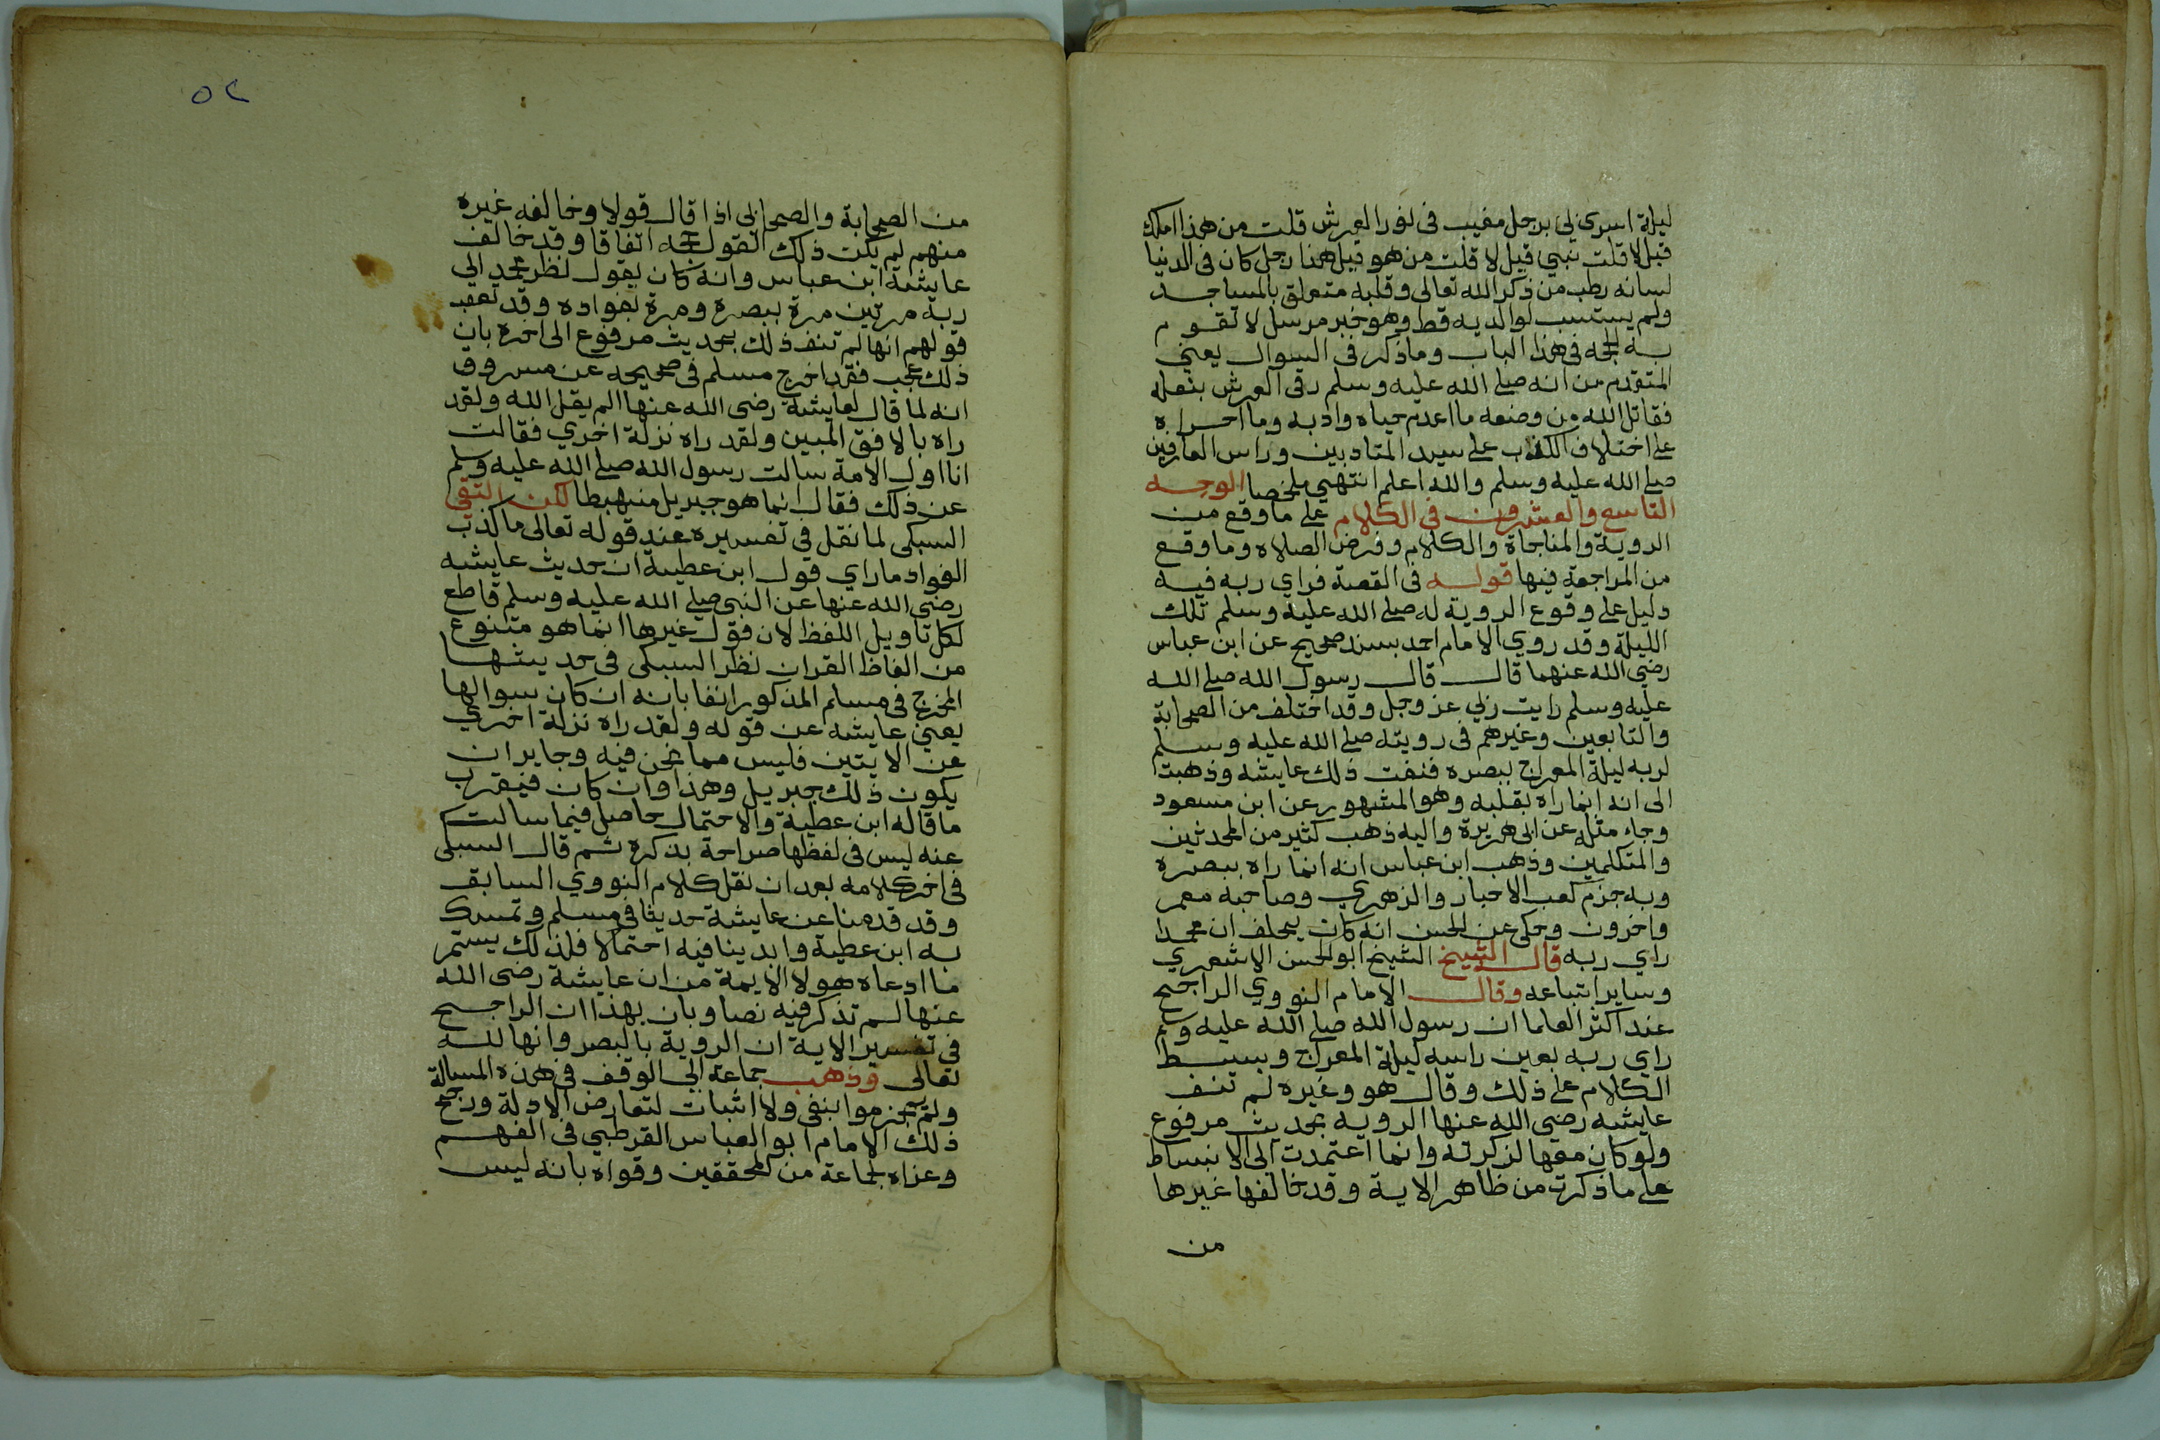 ليلة اسري بي برجل مغيب في نور العرش قلت من هذا املك
قيل لا قلت نبي قيل لا قلت من هو قيل هذا رجل كان في الدنيا
لسانه رطب من ذكر الله تعالى وقلبه متعلق بالمساجد
ولم يستسب لوالديه قط وهو خبر مرسل لا تقوم
به الحجه في هذا الباب وما ذكر في السوال يعني
المتقدم من انه صلى الله عليه وسلم رقى العرش بنعله
فقاتل الله من وضعه ما اعدم حياه وادبه وما اجراه
على اختلاف الكذب على سيد المتادبين وراس العارفين
صلى الله عليه وسلم والله اعلم انتهي ملخصا الوجه
التاسع والعشرون في الكلام على ما وقع من
الروية والمناجاة والكلام وفرض الصلاه وما وقع
من المراجعة فيها قوله في القصة فراي ربه فيه
دليل على وقوع الروية له صلى الله عليه وسلم تلك
الليلة وقد روي الامام احمد بسند صحيح عن ابن عباس
رضي الله عنهما قال قال رسول الله صلى الله
عليه وسلم رايت ربي عز وجل وقد اختلف من الصحابة
والتابعين وغيرهم في رويته صلى الله عليه وسلم
لربه ليلة المعراج ببصره فنفت ذلك عايشه وذهبت
الى انه انما راه بقلبه وهو المشهور عن ابن مسعود
وجاء مثله عن ابى هريرة واليه ذهب كثير من المحدثين
والمتكلمين وذهب ابن عباس انه انما راه ببصره
وبه جزم كعب الاحبار والزهري وصاحبه معمر
واخرون وحكى عن الحسن انه كان يحلف ان محمدا
راي ربه قال الشيخ الشيخ ابو الحسن الاشعري
وساير اتباعه وقال الامام النووي الراجح
عند اكثر العلما ان رسول الله صلى الله عليه وسلم
راي ربه بعين راسه ليلة المعراج وبسط
الكلام على ذلك وقال هو وغيره لم تنف
عايشه رضي الله عنها الرويه بحديث مرفوع
ولو كان معها لذكرته وانما اعتمدت الى الانبساط
على ما ذكرت من ظاهر الاية وقد خالفها غيرها
من
٥٢
من الصحابة والصحابى اذا قال قولا وخالفه غيره
منهم لم يكن ذلك القول حجه اتفاقا وقد خالف
عايشة ابن عباس وانه كان يقول نظر محمد الى
ربه مرتين مرة ببصره ومرة بفواده وقد تعقب
قولهم انها لم تنف ذلك بحديث مرفوع الى اخره بان
ذلك عجب فقد اخرج مسلم في صحيحه عن مسروق
انه لما قال لعايشة رضي الله عنها الم يقل الله ولقد
راه بالافق المبين ولقد راه نزلة اخري فقالت
انا اول الامة سالت رسول الله صلى الله عليه وسلم
عن ذلك فقال انما هو جبريل منهبطا لكن التقي
السبكى لما نقل في تفسيره عند قوله تعالى ما كذب
الفواد ماراي قول ابن عطية ان حديث عايشه
رضي الله عنها عن النبي صلى الله عليه وسلم قاطع
لكل تاويل اللفظ لان قول غيرها انما هو متنوع
من الفاظ القران نظر السبكى في حديثها
المخرج في مسلم المذكور انفا بانه ان كان سوالها
يعني عايشه عن قوله ولقد راه نزلة اخري
عن الايتين فليس مما نحن فيه وجايز ان
يكون ذلك جبريل وهذا وان كان فيقرب
ما قاله ابن عطية والاحتمال حاصل فيما سالت
عنه ليس في لفظها صراحة بذكره ثم قال السبكى
في اخر كلامه بعد ان نقل كلام النووي السابق
وقد قدمنا عن عايشة حديثا في مسلم وتمسك
به ابن عطية وابدينا فيه احتمالا فلذلك يستمر
ما ادعاه هولا الايمة من ان عايشة رضى الله
عنها لم تذكر فيه نصا وبان بهذا ان الراجح
في تفسير الاية ان الروية بالبصر وانها لله
تعالى وذهب جماعة الى الوقف في هذه المسالة
ولم يجزموا بنفي ولا اثبات لتعارض الادلة ورجح
ذلك الامام ابو العباس القرطبي في الفهم
وعزاه لجماعة من المحققين وقواه بانه ليس